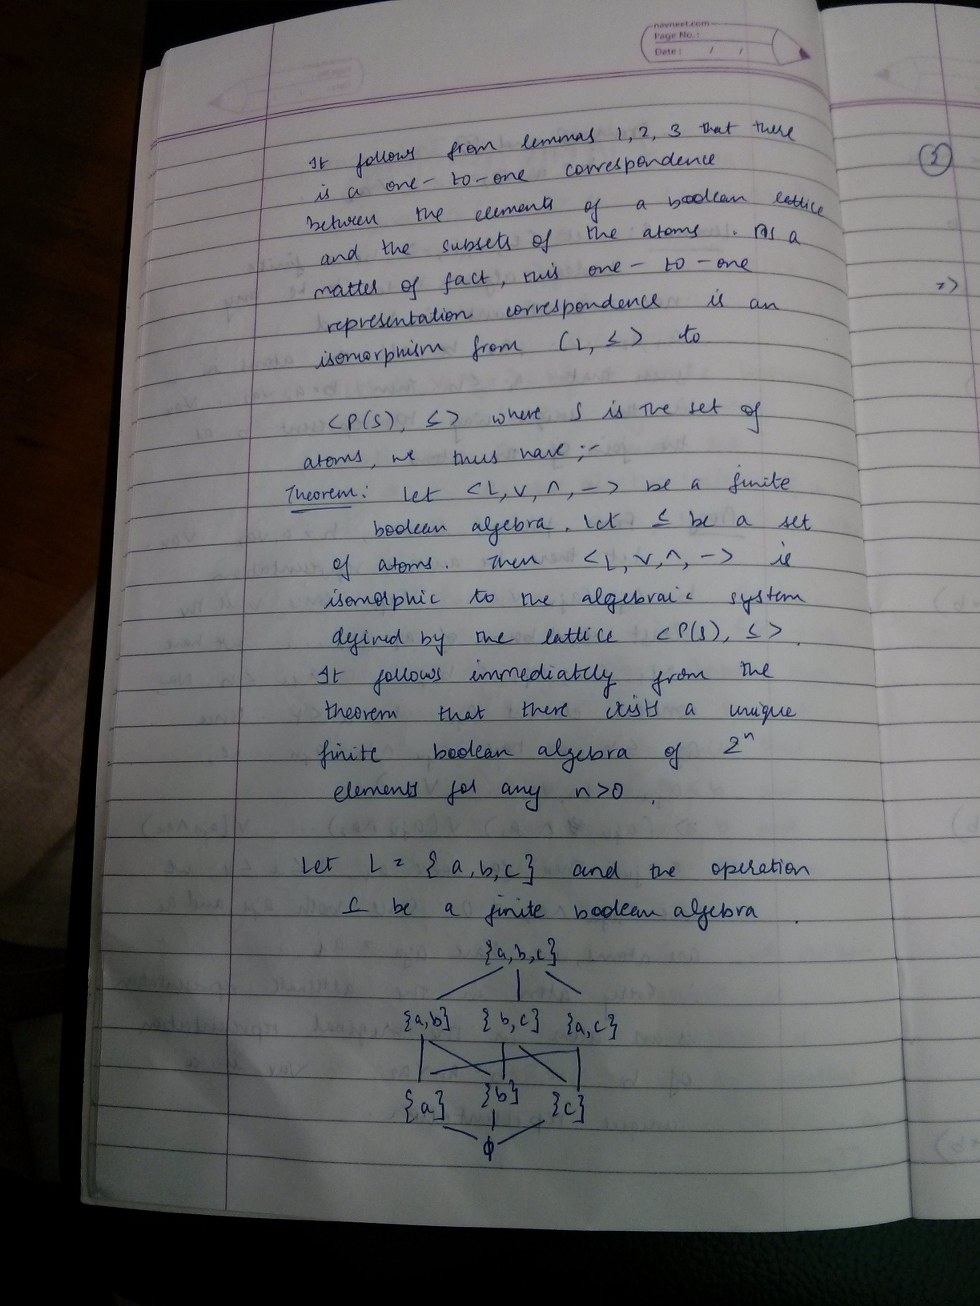 navneet.com
Page No.:
Date: / /
It follows from lemmas 1, 2, 3 that there
is a one-to-one correspondence
between the elements of a boolean lattice
and the subsets of the atoms. As a
matter of fact, this one-to-one
representation correspondence is an
isomorphism from (L, ≤> to
<P(S), ≤> where S is the set of
atoms, we thus have :-
Theorem: Let <L, ∨, ∧, -> be a finite
boolean algebra. Let S be a set
of atoms. Then <L, ∨, ∧, -> is
isomorphic to the algebraic system
defined by the lattice <P(S), ≤>.
It follows immediately from the
theorem that there exists a unique
finite boolean algebra of 2ⁿ
elements for any n>0.
Let L = {a,b,c} and the operation
≤ be a finite boolean algebra.
{a,b,c}
{a,b} {b,c} {a,c}
{a} {b} {c}
ϕ
=>